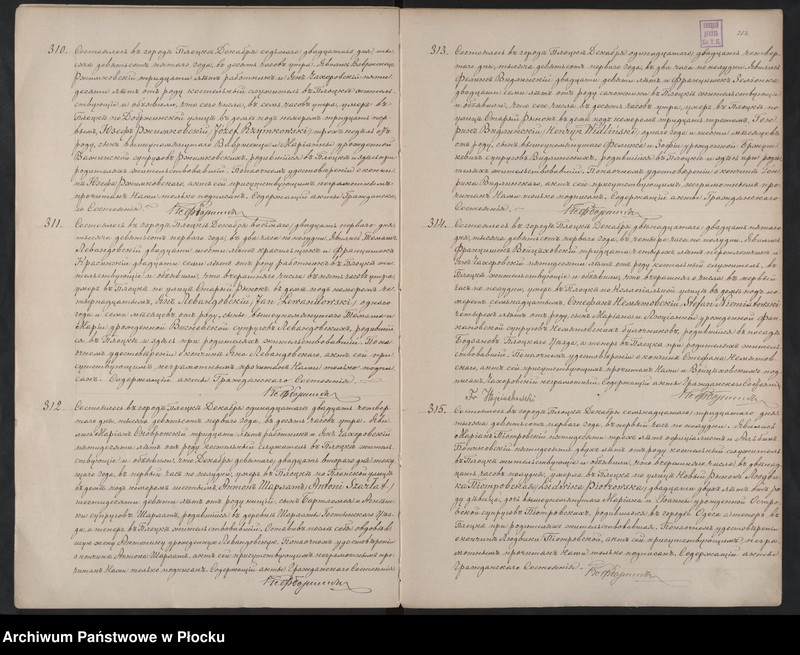 310. Состоялось въ городѣ Плоцкѣ Декабря седьмаго /двадцатаго/ дня, ты-
сяча девятьсотъ перваго года, въ десять часовъ утра. Явились Вавржинецъ
Ржимковскій тридцати лѣтъ работникъ и Янъ Чахоровскій пяти-
десяти лѣтъ отъ роду костельный служитель въ Плоцкѣ житель-
ствующіе и объявили, что сего числа, въ семь часовъ утра, умеръ въ
Плоцкѣ по Добржинской улицѣ въ домѣ подъ номеромъ тридцать пер-
вымъ, Іозефъ Ржимковскій /Józef Rzymkowski/ трехъ недѣль отъ
роду, сынъ вышеупомянутаго Вавржинца и Маріанны урожденной
супруговъ Ржимковскихъ, родившійся въ Плоцкѣ и здѣсь при
родителяхъ жительствовавшій. По наочномъ удостовѣреніи о кончи-
нѣ Іозефа Ржимковскаго, актъ сей присутствующимъ неграмотнымъ
прочитанъ Нами только подписанъ. Содержащій акты Гражданска-
го Состоянія.
311. Состоялось въ городѣ Плоцкѣ Декабря восьмаго /двадцать перваго/ дня,
тысяча девятьсотъ перваго года, въ два часа по полудни. Явились Томашъ
Левандовскій двадцати лѣтъ и Францишекъ
Красинскій двадцати семи лѣтъ отъ роду работникъ въ Плоцкѣ жи-
тельствующіе и объявили, что вчерашняго числа въ пять часовъ утра,
умеръ въ Плоцкѣ по улицѣ Старый Рынокъ въ домѣ подъ номеромъ че-
тырнадцатымъ, Янъ Левандовскій, /Jan Lewandowski/ одного
года и семи мѣсяцевъ отъ роду, сынъ вышеупомянутаго Томаша и
Маріи урожденной Висневской супруговъ Левандовскихъ, родивший-
ся въ Плоцкѣ и здѣсь при родителяхъ жительствовавшій. По на-
очномъ удостовѣреніи о кончинѣ Яна Левандовскаго, актъ сей при-
сутствующимъ неграмотнымъ прочитанъ Нами только подпи-
санъ. Содержащій акты Гражданскаго Состоянія.
312. Состоялось въ городѣ Плоцкѣ Декабря одинадцатаго /двадцать четвер-
таго/ дня, тысяча девятьсотъ перваго года, въ десять часовъ утра. Яви-
лись Маріанъ Сковронскій тридцати лѣтъ работникъ и Янъ Чахоровскій
пятидесяти лѣтъ отъ роду костельный служитель въ Плоцкѣ житель-
ствующіе и объявили, что Декабря девятаго /двадцать втораго/ дня теку-
щаго года, въ первый часъ по полудни, умеръ въ Плоцкѣ по улицѣ
въ домѣ подъ номеромъ шестымъ, Антонъ Шарлатъ /Antoni Szarłat/
шестидесяти девяти лѣтъ отъ роду нищій, сынъ Бартломея и
супруговъ Шарлатъ, родившійся въ деревнѣ Шарлаты Уѣз-
да, а теперь въ Плоцкѣ жительствовавшій. Оставивъ послѣ себя овдовѣв-
шую жену Антонину урожденную Левандовскую. По наочномъ удостовѣреніи
о кончинѣ Антона Шарлатъ, актъ сей присутствующимъ неграмотнымъ про-
читанъ Нами только подписанъ. Содержащій акты Гражданскаго Состоянія
313. Состоялось въ городѣ Плоцкѣ Декабря одинадцатаго /двадцать четвер-
таго/ дня, тысяча девятьсотъ перваго года, въ два часа по полудни. Явились
Феликсъ Видлинскій двадцати девяти лѣтъ и Францишекъ
двадцати семи лѣтъ отъ роду сапожники въ Плоцкѣ жительствующіе
и объявили, что сего числа въ десять часовъ утра, умеръ въ Плоцкѣ по
улицѣ Старый Рынокъ въ домѣ подъ номеромъ тридцать третьимъ, Ген-
рикъ Видлинскій, /Henryk Widliński/ одного года и шести мѣсяцевъ
отъ роду, сынъ вышеупомянутаго Феликса и Зофіи урожденной
супруговъ Видлинскихъ, родившійся въ Плоцкѣ и здѣсь при роди-
теляхъ жительствовавшій. По наочномъ удостовѣреніи о кончинѣ Ген-
рика Видлинскаго, актъ сей присутствующимъ неграмотнымъ про-
читанъ Нами только подписанъ. Содержащій акты Гражданскаго
Состоянія.
314. Состоялось въ городѣ Плоцкѣ Декабря двенадцатаго /двадцать пятаго/
дня, тысяча девятьсотъ перваго года, въ четыре часа по полудни. Явились
Францишекъ Войцѣховскій тридцати четырехъ лѣтъ и
Янъ Чахоровскій пятидесяти лѣтъ отъ роду костельный служитель, въ
Плоцкѣ жительствующіе и объявили, что вчерашняго числа въ первый
часъ по полудни, умеръ въ Плоцкѣ по Коллегіальной улицѣ въ домѣ подъ но-
меромъ семнадцатымъ, Стефанъ /Stefan/
четырехъ лѣтъ отъ роду, сынъ Маріана и Люціанны урожденной
супруговъ родившійся въ посадѣ
Бодзановъ Плоцкаго Уѣзда, а теперь въ Плоцкѣ при родителяхъ житель-
ствовавшій. По наочномъ удостовѣреніи о кончинѣ Стефана
актъ сей присутствующимъ прочитанъ Нами и Войцѣховскимъ под-
писанъ, Чахоровскій неграмотный. Содержащій акты Гражданскаго Состоянія
315. Состоялось въ городѣ Плоцкѣ Декабря семнадцатаго /тридцатаго/ дня
тысяча девятьсотъ перваго года, въ первый часъ по полудни. Явились
Маріанъ Піотровскій пятидесяти трехъ лѣтъ оффиціалистъ и
пятидесяти двухъ лѣтъ отъ роду костельный служитель
въ Плоцкѣ жительствующіе и объявили, что вчерашняго числа въ двенад-
цать часовъ полудня, умерла въ Плоцкѣ по улицѣ Новый Рынокъ Людви-
ка Піотровская /Ludwika Piotrowska/ двадцати двухъ лѣтъ отъ ро-
ду дѣвица, дочь вышеупомянутаго Маріана и урожденной Остро-
вской супруговъ Піотровскихъ, родившаяся въ городѣ Одессѣ а теперь въ
Плоцкѣ при родителяхъ жительствовавшая. По наочномъ удостовѣреніи
о кончинѣ Людвики Піотровской, актъ сей присутствующимъ негра-
мотнымъ прочитанъ Нами только подписанъ. Содержащій акты
Гражданскаго Состоянія.
Archiwum Państwowe w Płocku